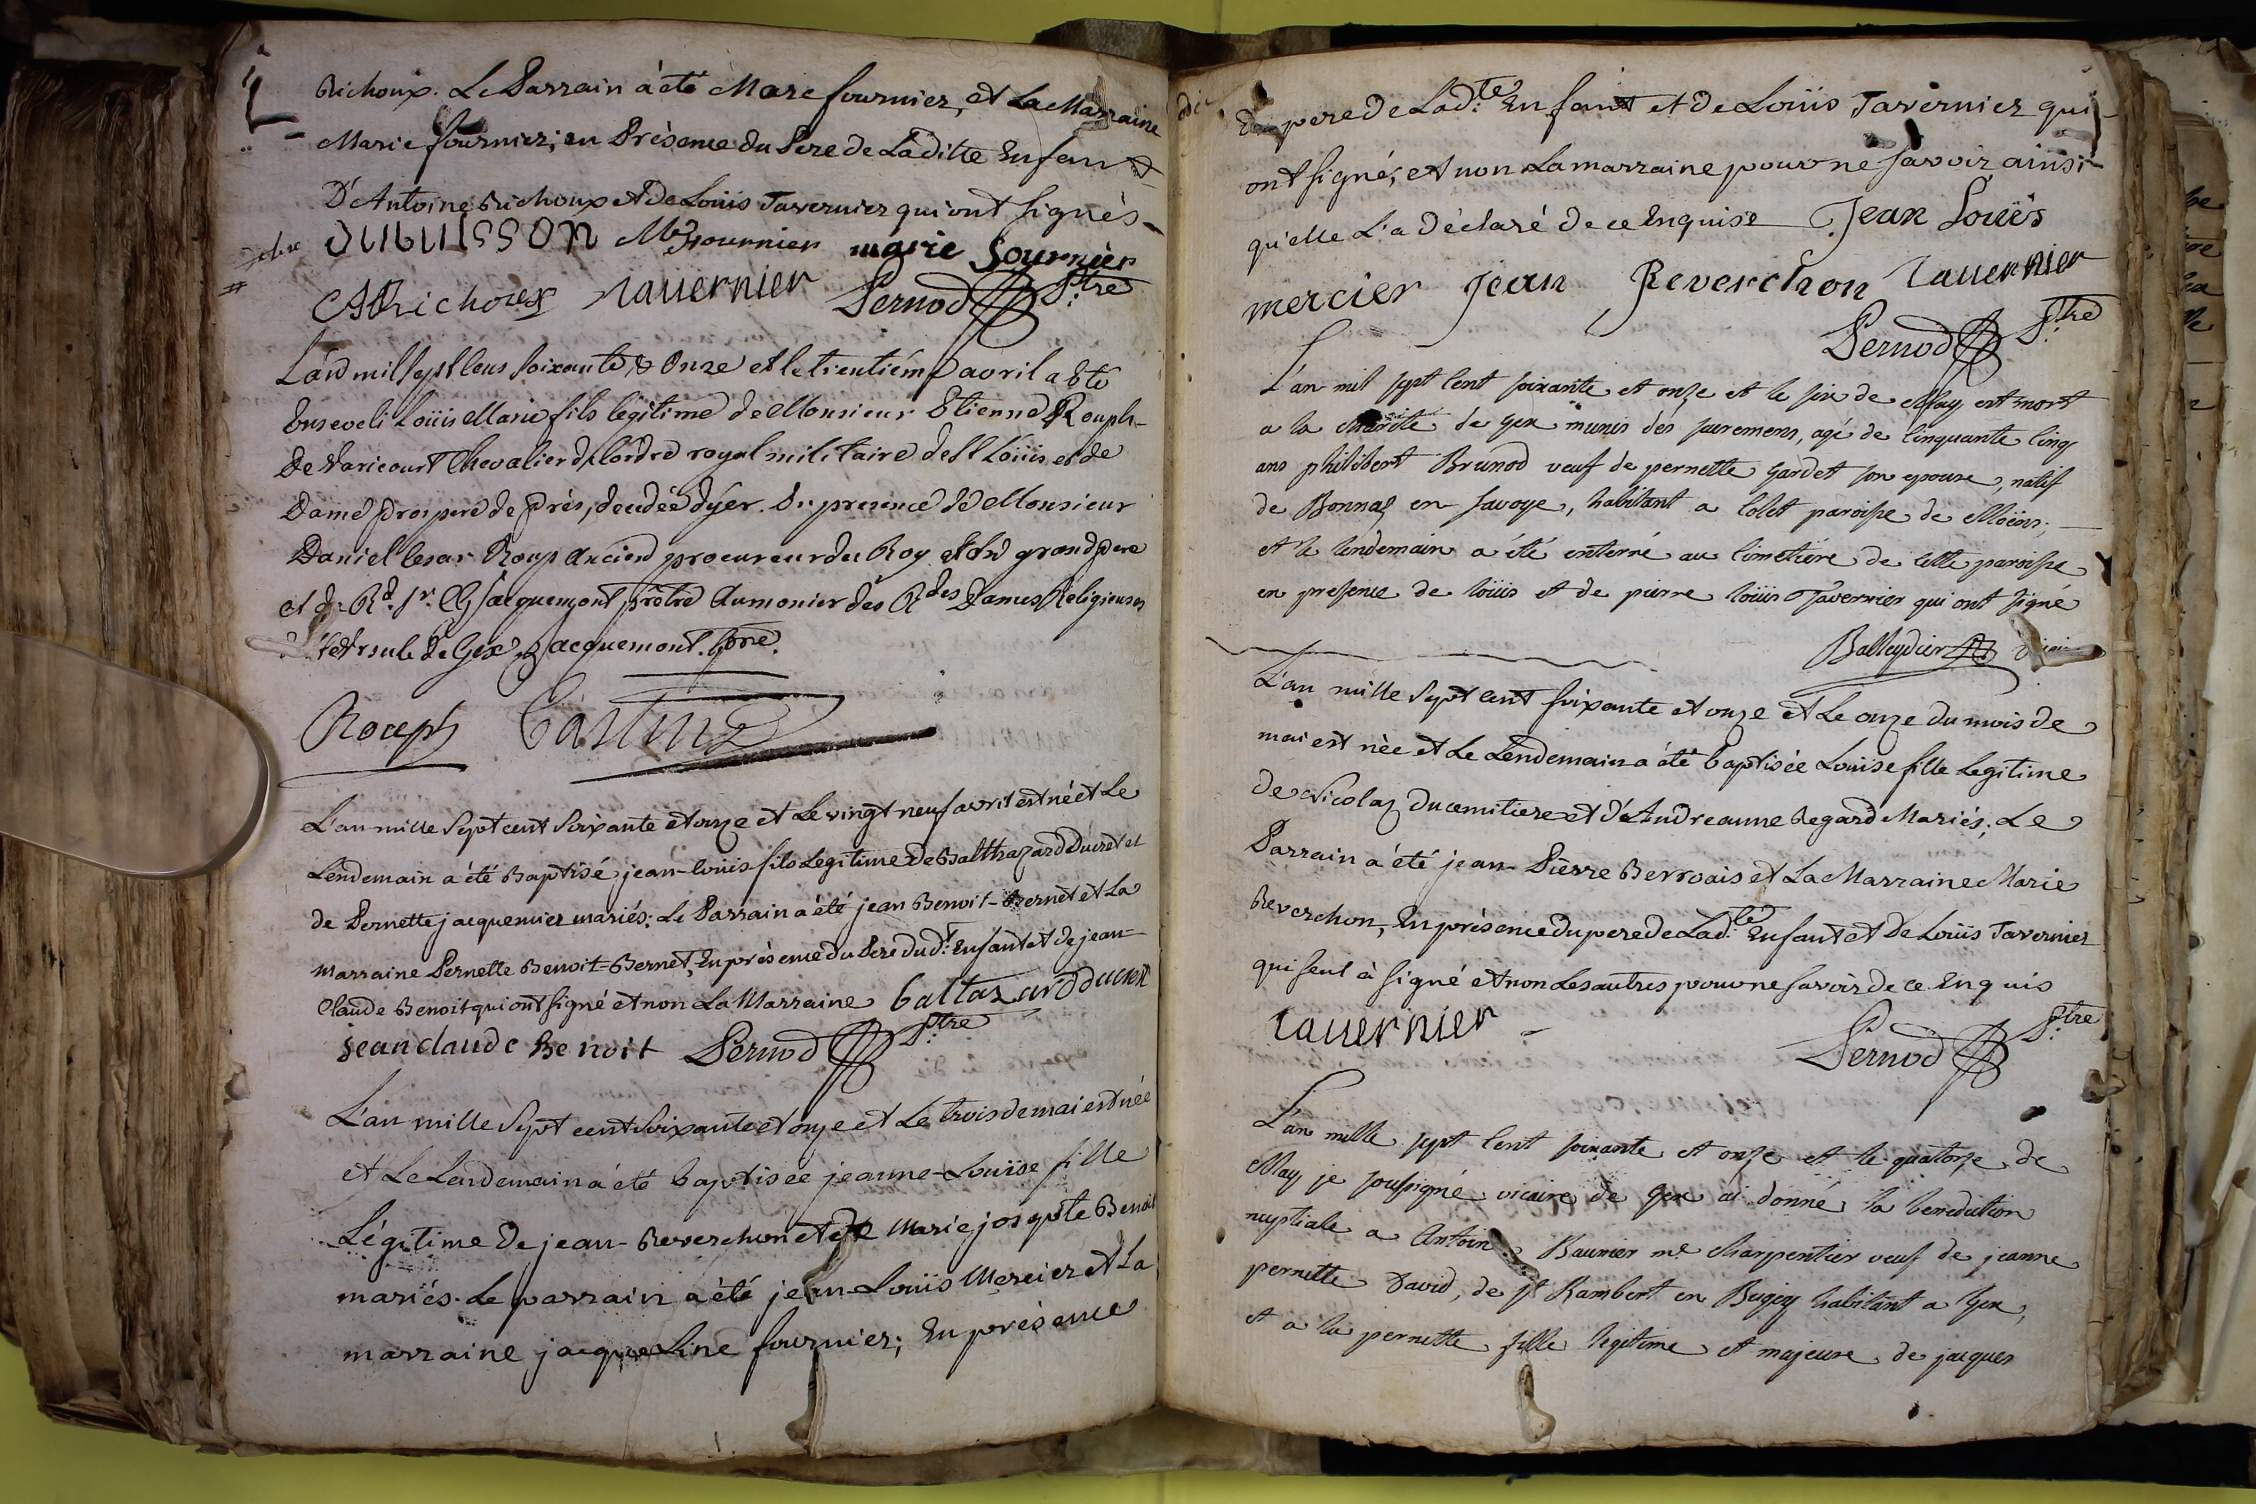 Richoux. Le Parrain à été Marc fournier, et La Marraine
Marie fournier; en Présence du Pere de Laditte Enfant
D'Antoine Richoux et de Loüis Tavernier qui ont signés
DUBUISSON Mc fournier marie fournier
Richoux tauernier Pernod Ptre
L'an mil sept cens soixante & onze et le trentiéme avril a été
Enseveli Loüis Marie fils légitime de Monsieur Etienne Rouph
De Varicourt Chevalier de l'ordre royal militaire de St Loüis et de
Dame prospere de prés, decedé dhyer. En presence de Monsieur
Daniel Cesar Roup Ancien procureur du Roy et son grand pere
et de Rd. Sr. Jacquemont prêtre Aumonier des Rdes Dames Religieuses
de Ste Ursule de Gex Jacquemont. ptre.
Rouph
L'an mille Sept cent Soixante et onze et Le vingt neuf avril est né et Le
Lendemain a été Baptisé jean-louis fils Legitime De Balthazard Ducret et
de Pernette jacquemier mariés; Le Parrain a été jean Benoit-Bernet et La
Marraine Pernette Benoit-Bernet, En présence du Pere du d.t Enfant et de jean-
Claude Benoit qui ont signé et non La Marraine baltazard ducret
jean claude Benoit Pernod P.tre
L'an mille Sept cent Soixante et onze et Le trois de mai est née
et Le Lendemain a été baptisée jeanne-Louise fille
Légitime de jean-Reverchon et de Marie josepte Benoit
mariés. Le parrain a été jean-Louis Mercier et La
marraine jacqueline fournier; En présence
Du pere de Lad.te Enfant et de Loüis Tavernier qui
ont signés, et non La marraine pour ne savoir ainsi
qu'elle L'a déclaré de ce Enquise Jean Louis
mercier jean Reverchon Tauernier
Pernod P.tre
L'an mil sept cent soixante et onze et le six de May est mort
a la charité de Gex munis des sacremens, agé de cinquante cinq
ans philibert Brunod veuf de pernette Gardet son epouse, natif
de Bonnaz en Savoye, habitant a Colet paroisse de Moëns;
et le lendemain a été enterré au cimetiere de cette paroisse
en presence de loüis et de pierre loüis Tavernier qui ont signé
Balleydier
L'an mille Sept cent soixante et onze et Le onze du mois de
mai est née et Le Lendemain a été baptisée Louise fille Legitime
de Nicolas Ducemitiere et d'Andreanne Regard Mariés; Le
Parrain a été jean-Pierre Bervais et La Marraine Marie
Reverchon, En présence du pere de Lad.te Enfant et de Louis Tavernier
qui seul à signé et non Les autres pour ne savoir de ce Enquis
tauernier
Pernod P.tre
L'an mille sept cent soixante et onze et le quatorze de
May je soussigné vicaire de Gex ai donné la benediction
nuptiale a Antoine Baunier me charpentier veuf de jeanne
pernette David, de st Rambert en Bugey habitant a Gex,
et a la pernette fille legitime et majeure de jacques